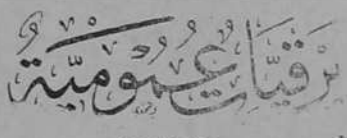 بَرْقِيَّات عُمُومِيَّةُ